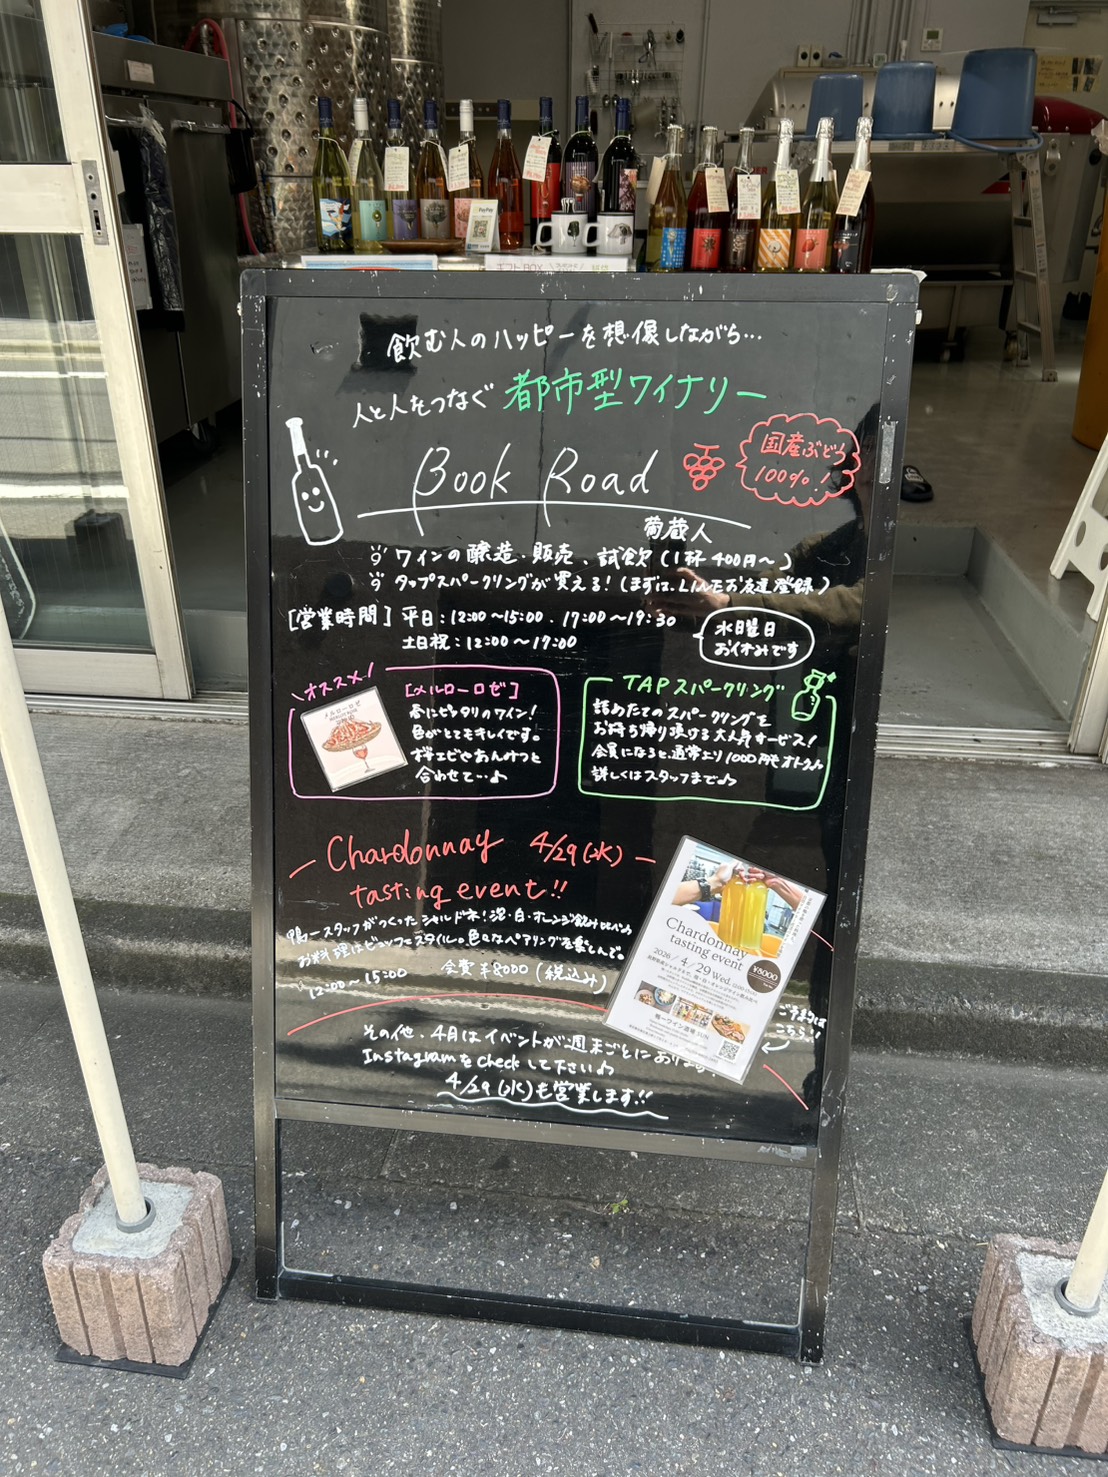 飲む人のハッピーを想像しながら…
人と人をつなぐ 都市型ワイナリー
Book Road
国産ぶどう
100%!
葡蔵人
ワインの醸造・販売、試飲(1杯400円〜)
タップスパークリングが買える!(まずは、LINEお友達登録)
[営業時間] 平日:12:00〜15:00、17:00〜19:30
土日祝:12:00〜17:00
水曜日
お休みです
オススメ!
[メルローロゼ]
春にピッタリのワイン!
色がとてもキレイです。
桜エビやあんみつと
合わせて…♪
メルローロゼ
TAPスパークリング
詰めたてのスパークリングを
お持ち帰り頂ける大人気サービス!
会員になると、通常より1000円もオトク♪
詳しくはスタッフまで♪
Chardonnay 4/29(水)
tasting event!!
鴨一スタッフがつくったシャルドネ!泡・白・オレンジ飲み比べ♪
お料理はビュッフェスタイル。色々なペアリングを楽しんで。
12:00〜15:00 会費¥8000(税込み)
Chardonnay
tasting event
2026/4/29 Wed.
¥8000
鴨一ワイン酒場 SUN
ご予約は
こちら!
その他、4月はイベントが週末ごとにあります
Instagramをcheckして下さい♪
4/29(水)も営業します!!
PayPay
ギフトBOX